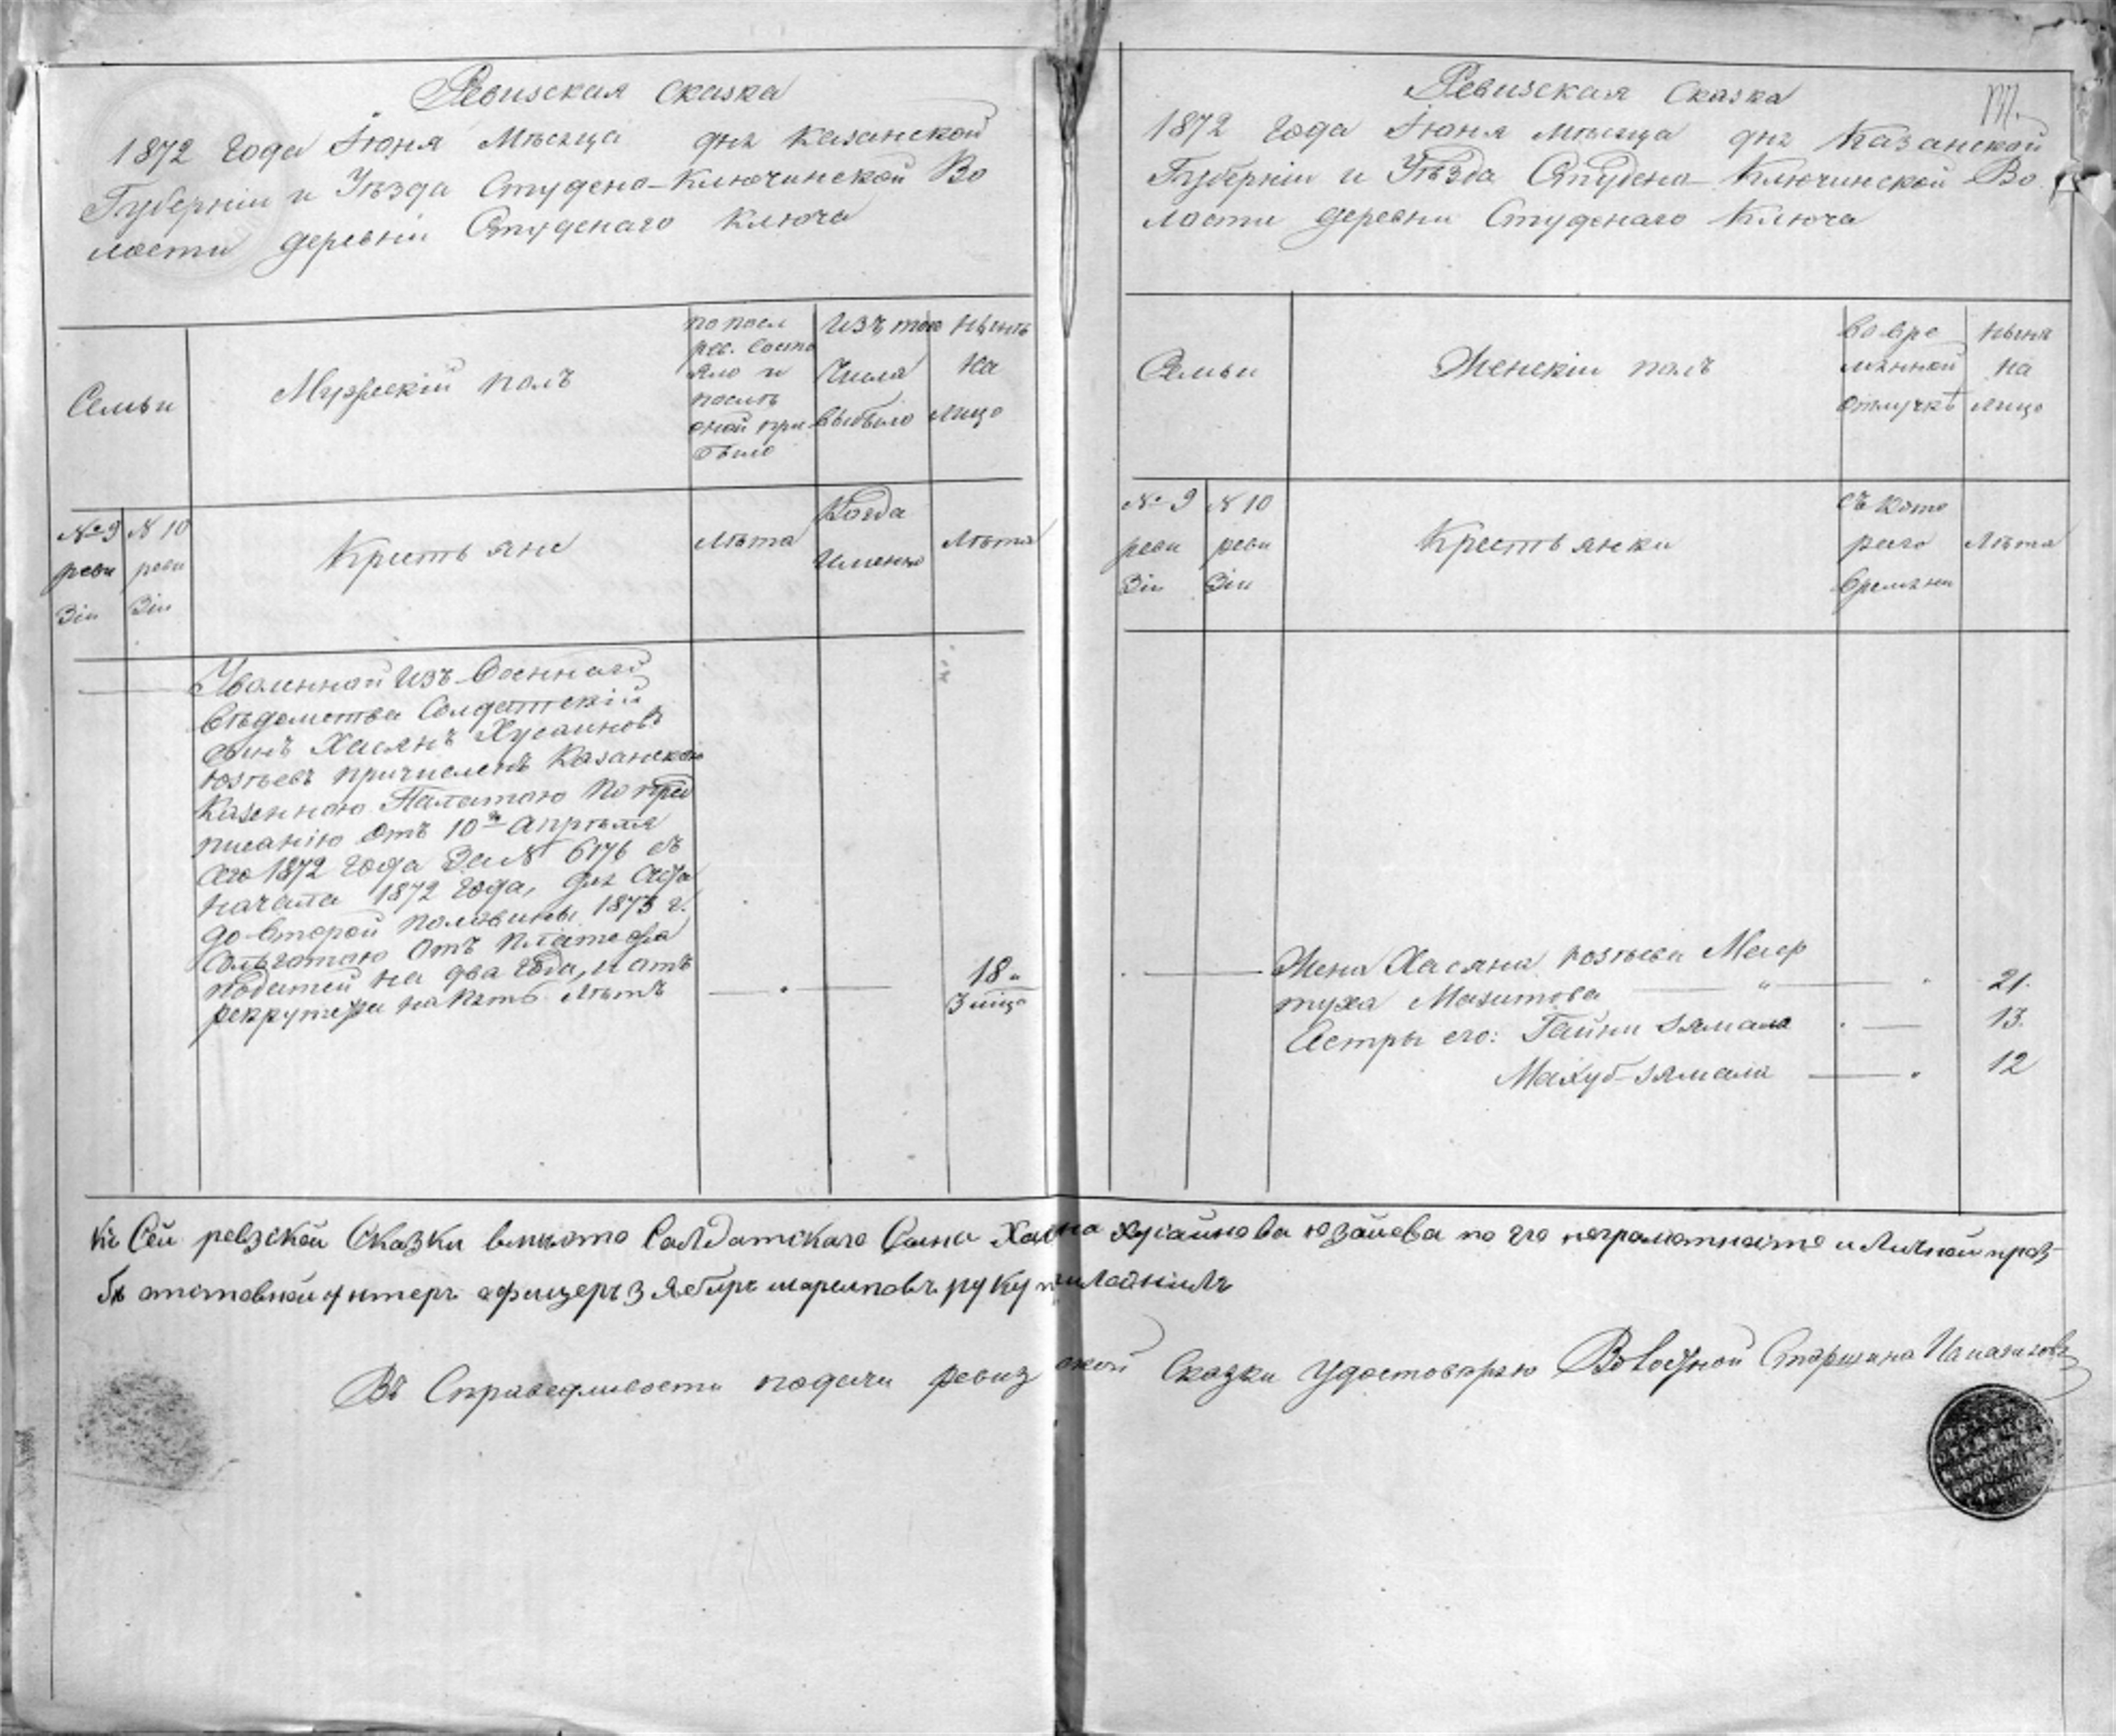 Ревизская сказка
1872 года Іюня Мѣсяца дня Казанской
Губерніи и Уѣзда Студено-Ключинской Во
лости деревни Студенаго Ключа
Семьи
Мужескій полъ
по посл
рев. состо
яло и
послѣ
оной при
было
Изъ того
Числа
выбыло
Нынѣ
на
лицо
№ 9
реви
зіи
N 10
реви
зіи
Крестьяне
Лѣта
Когда
Именно
Лѣта
Уволенной изъ Военнаго
Вѣдомства Солдатскій
сынъ Хасянъ Хусаиновъ
Юзѣевъ причисленъ Казанскою
Казенною Палатою по пред
писанію отъ 10 Апрѣля
сего 1872 года за № 6176 съ
начала 1872 года, для
до второй половины 1873 г.
Сольготою отъ платежа
податей на два года, и отъ
рекрутства на пять лѣтъ
18
3 лица
Ревизская Сказка
1872 года Іюня мѣсяца дня Казанской
Губерніи и Уѣзда Студено-Ключинской Во
лости деревни Студенаго Ключа
Семьи
Женскій полъ
во вре
мянной
отлучкѣ
Нынѣ
на
лицо
№ 9
реви
зіи
N 10
реви
зіи
Крестьянки
съ кото
раго
времяни
Лѣта
Жена Хасяна Юзѣева Мегер
туха Мазитова 21.
Сестры его: Гайни зямала 13.
Махуб-зямала 12
Къ Сей ревзской Сказки вмѣсто Салдатскаго Сына Хасяна Хусаинова Юзаиева по его неграмотности и Личной проз-
бѣ отставной унтеръ афицеръ Зябиръ шариповъ руку прилажилъ
Въ Справедливости подачи ревизской Сказки Удостоверяю Волостной Старшина